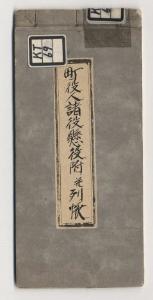 KT
69
町役人諸役懸役附並列帳